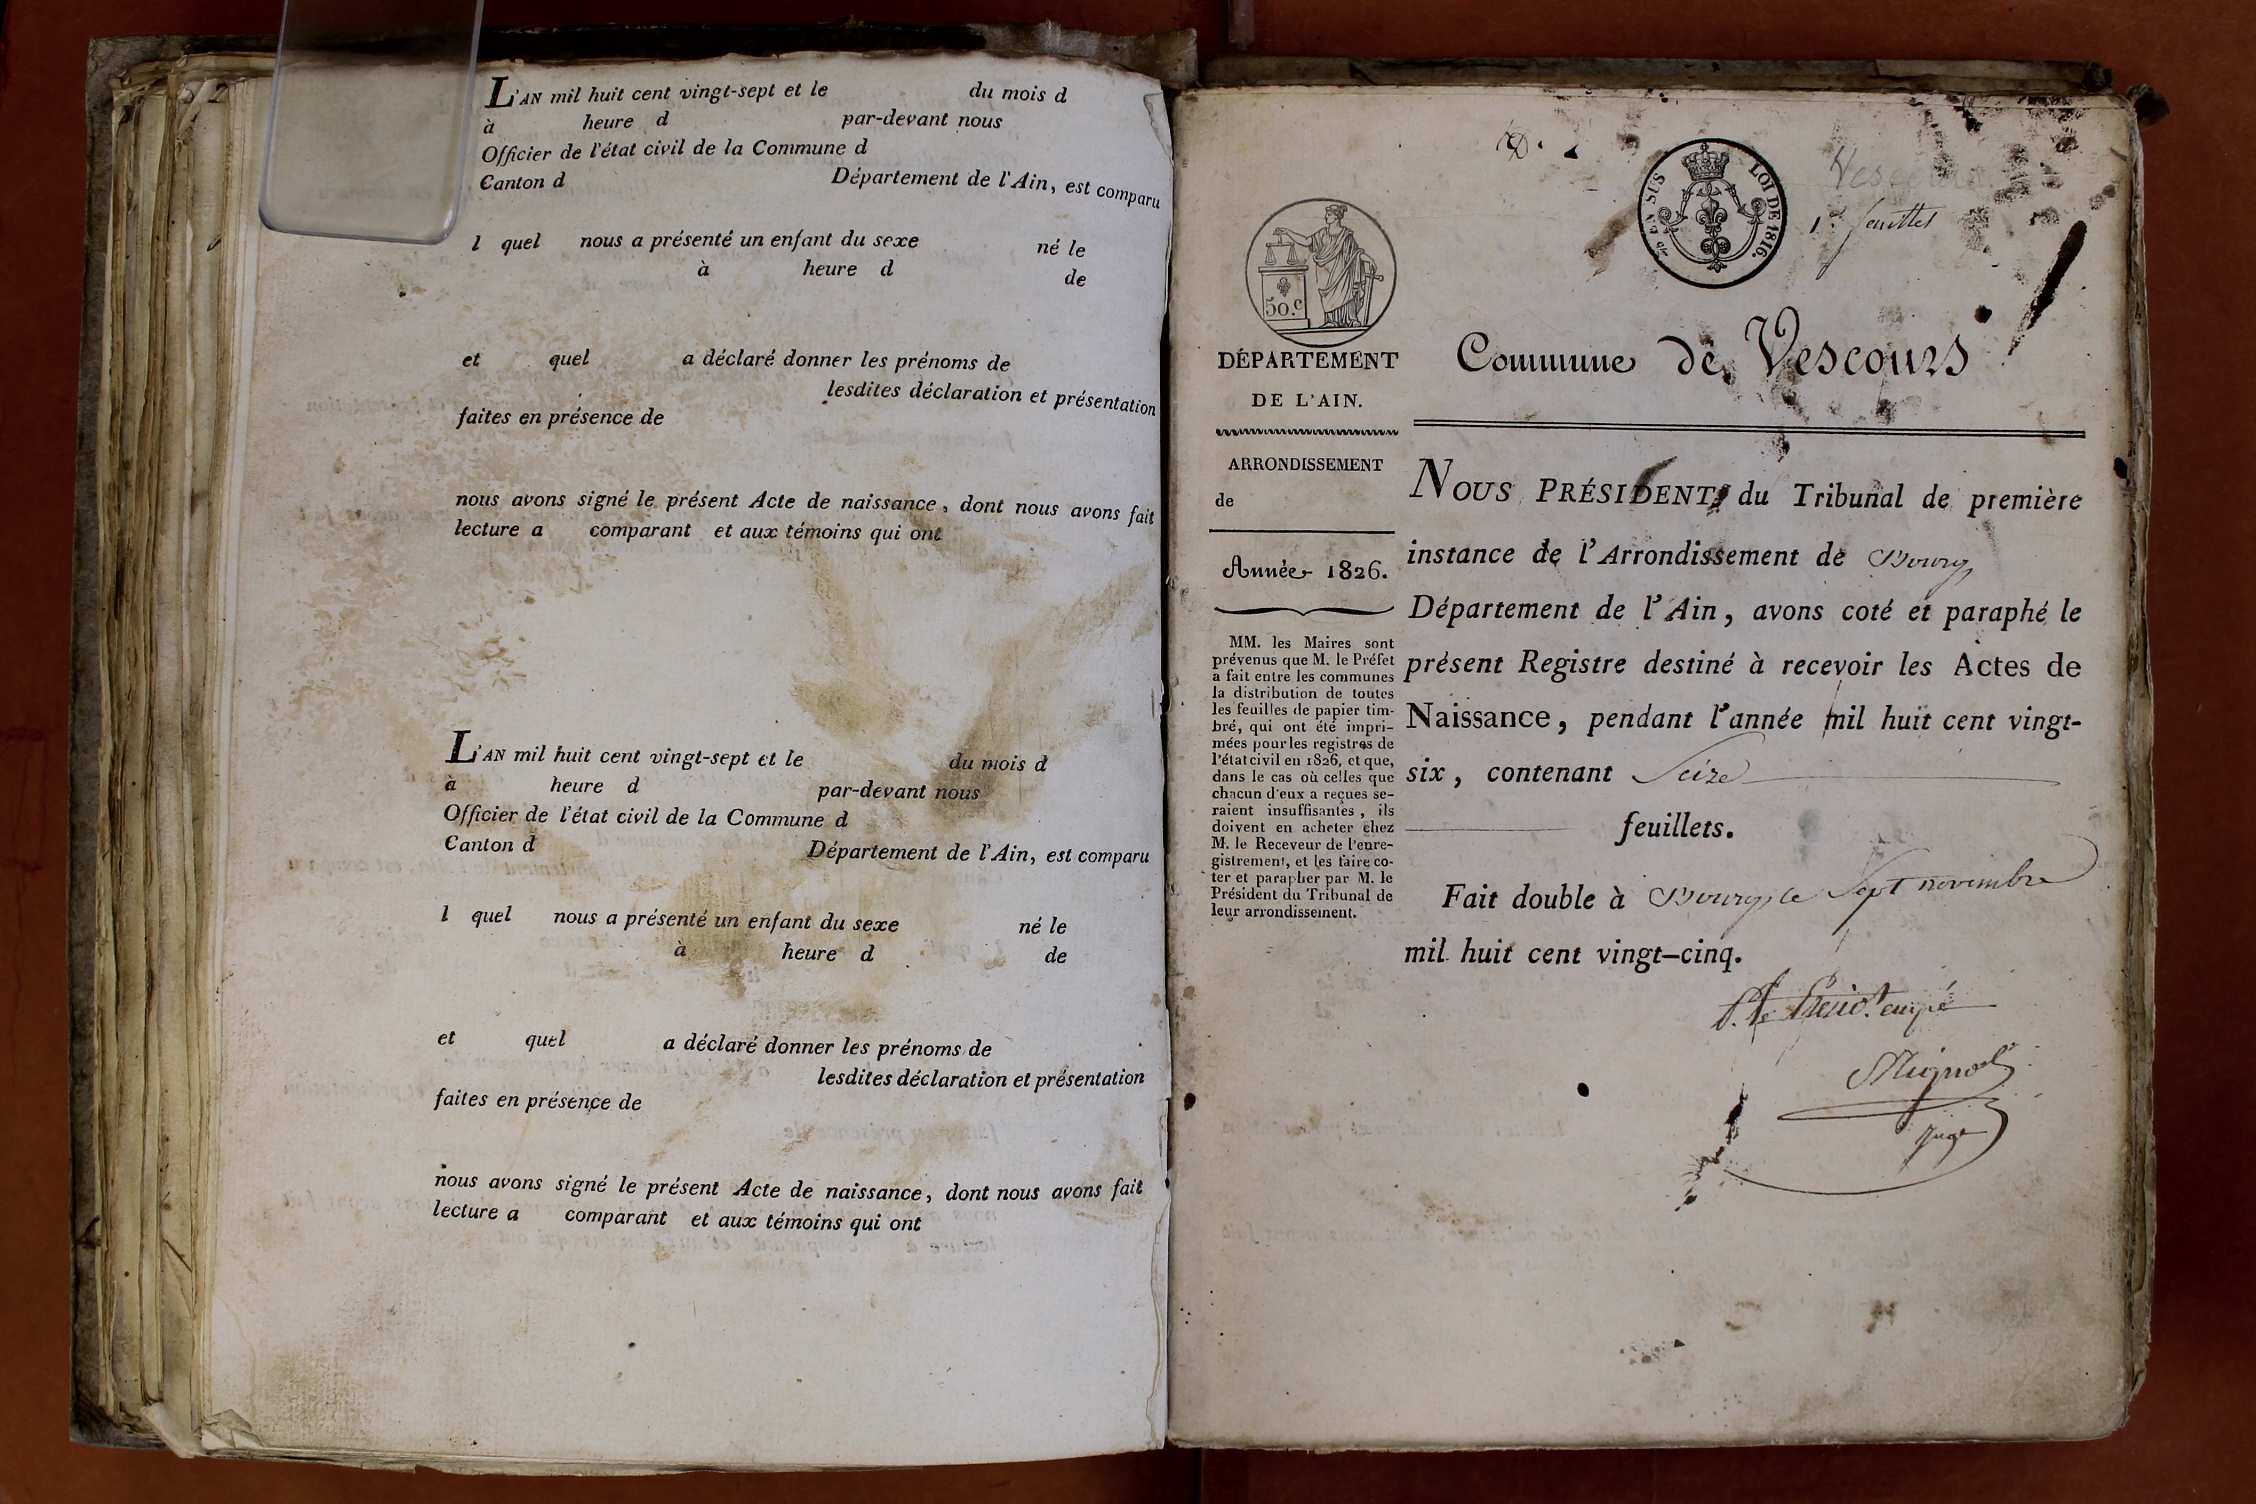 L'AN mil huit cent vingt-sept et le du mois d
à heure d par-devant nous
Officier de l'état civil de la Commune d
Canton d Département de l'Ain, est comparu
l quel nous a présenté un enfant du sexe né le
à heure d de
et quel a déclaré donner les prénoms de
lesdites déclaration et présentation
faites en présence de
nous avons signé le présent Acte de naissance, dont nous avons fait
lecture a comparant et aux témoins qui ont
L'AN mil huit cent vingt-sept et le du mois d
à heure d par-devant nous
Officier de l'état civil de la Commune d
Canton d Département de l'Ain, est comparu
l quel nous a présenté un enfant du sexe né le
à heure d de
et quel a déclaré donner les prénoms de
lesdites déclaration et présentation
faites en présence de
nous avons signé le présent Acte de naissance, dont nous avons fait
lecture a comparant et aux témoins qui ont
EN SUS LOI DE 1816.
feuillet
50.c
DÉPARTEMENT
DE L'AIN.
ARRONDISSEMENT
de
Année 1826.
MM. les Maires sont
prévenus que M. le Préfet
a fait entre les communes
la distribution de toutes
les feuilles de papier tim-
bré, qui ont été impri-
mées pour les registres de
l'état civil en 1826, et que,
dans le cas où celles que
chacun d'eux a reçues se-
raient insuffisantes, ils
doivent en acheter chez
M. le Receveur de l'enre-
gistrement, et les faire co-
ter et parapher par M. le
Président du Tribunal de
leur arrondissement.
Commune de Vescours
NOUS PRÉSIDENT du Tribunal de première
instance de l'Arrondissement de Bourg
Département de l'Ain, avons coté et paraphé le
présent Registre destiné à recevoir les Actes de
Naissance, pendant l'année mil huit cent vingt-
six, contenant Seize
feuillets.
Fait double à Bourg, le Sept novembre
mil huit cent vingt-cinq.
Juge